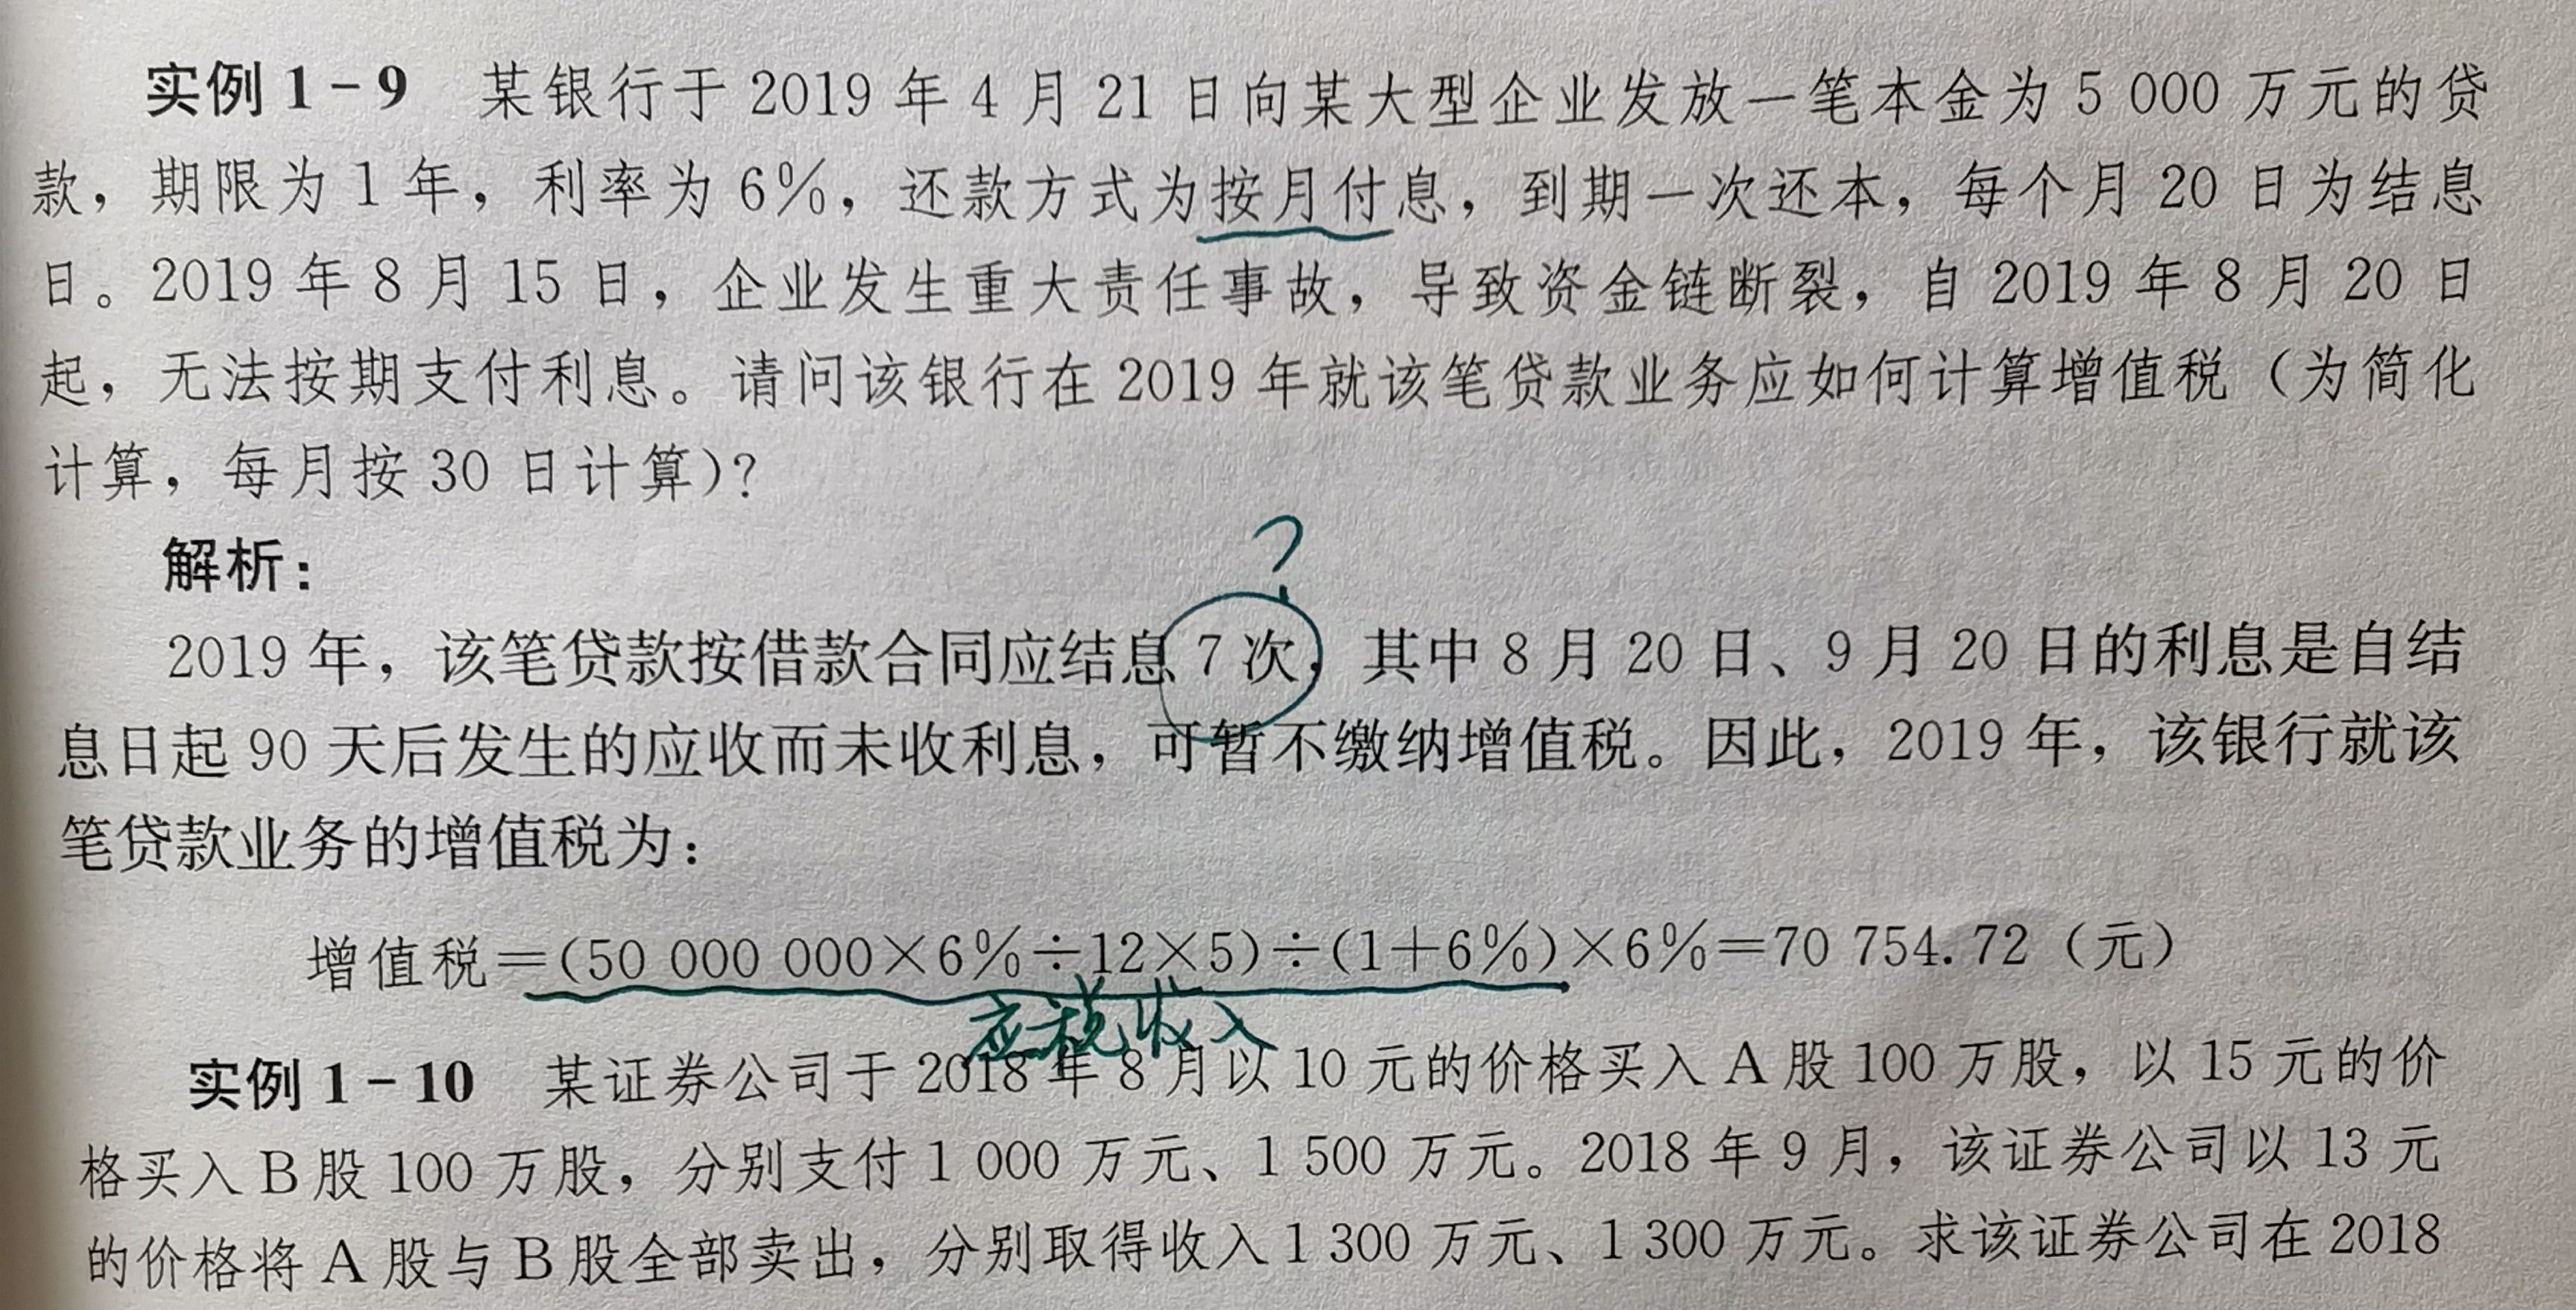 实例 1-9 某银行于 2019 年 4 月 21 日向某大型企业发放一笔本金为 5 000 万元的贷
款，期限为 1 年，利率为 6%，还款方式为按月付息，到期一次还本，每个月 20 日为结息
日。2019 年 8 月 15 日，企业发生重大责任事故，导致资金链断裂，自 2019 年 8 月 20 日
起，无法按期支付利息。请问该银行在 2019 年就该笔贷款业务应如何计算增值税（为简化
计算，每月按 30 日计算）？
解析：
?
2019 年，该笔贷款按借款合同应结息 7 次，其中 8 月 20 日、9 月 20 日的利息是自结
息日起 90 天后发生的应收而未收利息，可暂不缴纳增值税。因此，2019 年，该银行就该
笔贷款业务的增值税为：
增值税=(50 000 000×6%÷12×5)÷(1+6%)×6%=70 754.72（元）
应税收入
实例 1-10 某证券公司于 2018 年 8 月以 10 元的价格买入 A 股 100 万股，以 15 元的价
格买入 B 股 100 万股，分别支付 1 000 万元、1 500 万元。2018 年 9 月，该证券公司以 13 元
的价格将 A 股与 B 股全部卖出，分别取得收入 1 300 万元、1 300 万元。求该证券公司在 2018